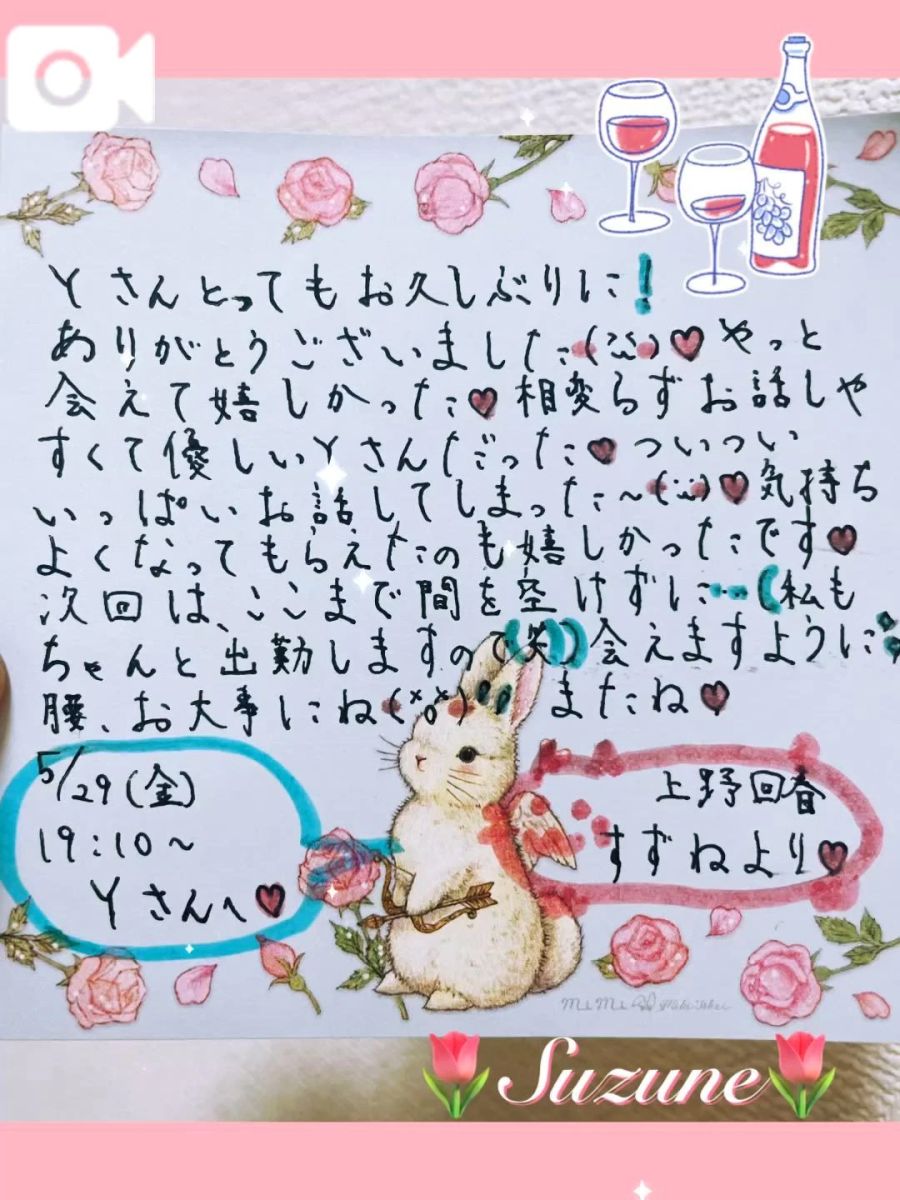 Yさんとってもお久しぶりに!
ありがとうございました(¨̮)♥やっと
会えて嬉しかった♥相変らずお話しや
すくて優しいYさんだった♥ついつい
いっぱいお話ししてしまった~(¨̮)♥気持ち
よくなってもらえたのも嬉しかったです♥
次回は、ここまで間を空けずに…(私も
ちゃんと出勤しますので(笑))会えますように
腰、お大事にね(×o×) またね♥
5/29(金)
19:10~
Yさんへ♥
上野回春
すずねより♥
Suzune